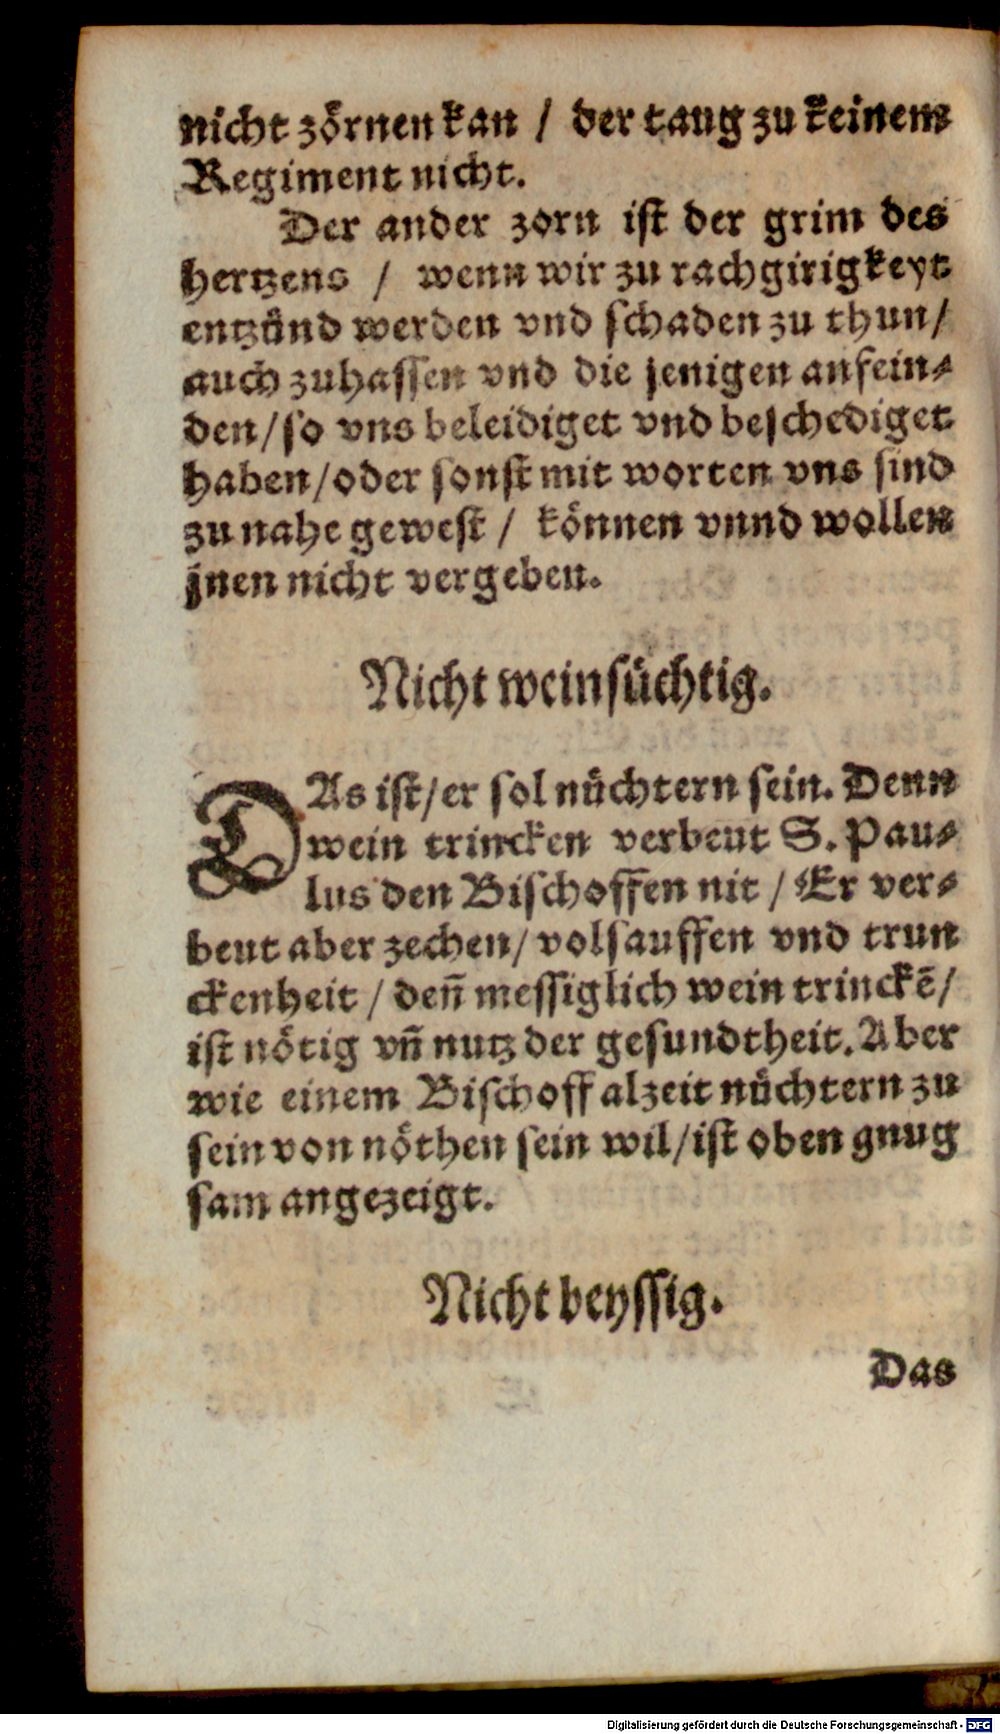 nicht zörnen kan / der taug zu keinem
Regiment nicht.
Der ander zorn ist der grim des
hertzens / wenn wir zu rachgirigkeyt
entzünd werden vnd schaden zu thun /
auch zuhassen vnd die jenigen anfein⸗
den / so vns beleidiget vnd beschediget
haben / oder sonst mit worten vns sind
zu nahe gewest / können vnnd wollen
jnen nicht vergeben.
Nicht weinsüchtig.
DAs ist / er sol nüchtern sein. Denn
wein trincken verbeut S. Pau⸗
lus den Bischoffen nit / Er ver⸗
beut aber zechen / volsauffen vnd trun
ckenheit / den̄ messiglich wein trinckē /
ist nötig vn̄ nutz der gesundtheit. Aber
wie einem Bischoff alzeit nüchtern zu
sein von nöthen sein wil / ist oben gnug
sam angezeigt.
Nicht beyssig.
Das
Digitalisierung gefördert durch die Deutsche Forschungsgemeinschaft - DFG